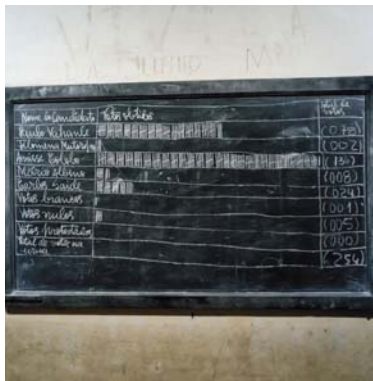 Nome do Candidato Votos obtidos Total de votos
Paulo Vahanle (078)
Filomena Mutoropa (002)
Amisse Cololo (13
Mário Albino (008)
Carlos Saíde (024)
Votos brancos (001)
Votos nulos (005)
Votos protestados (000)
Total de votos na urna (254)